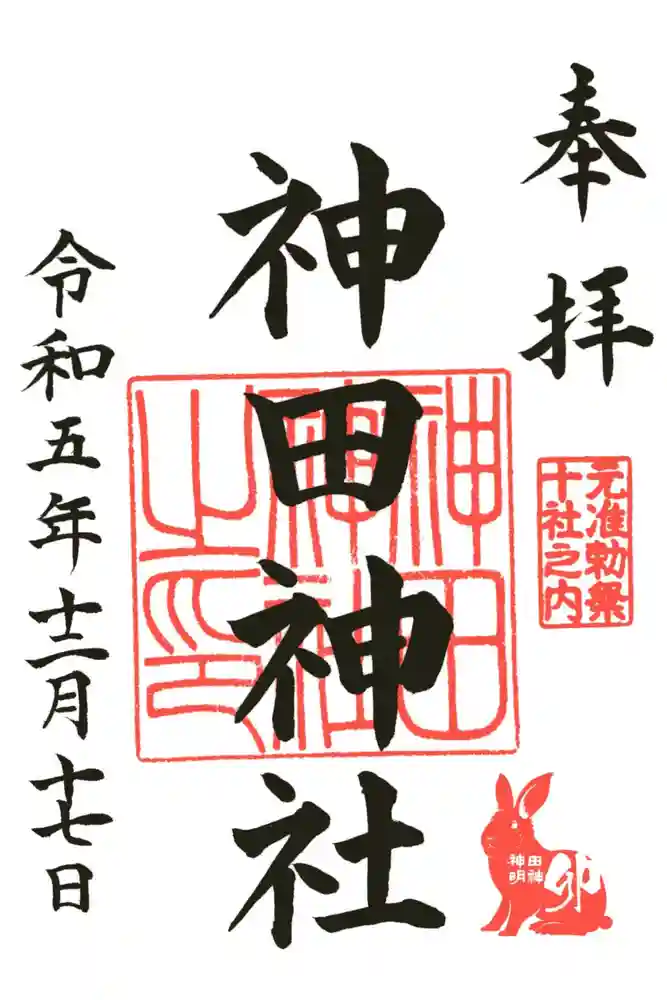 奉拝
元准勅祭
十社之内
神田神社
神田
神社
之印
神田
神明
卯
令和五年十二月十七日